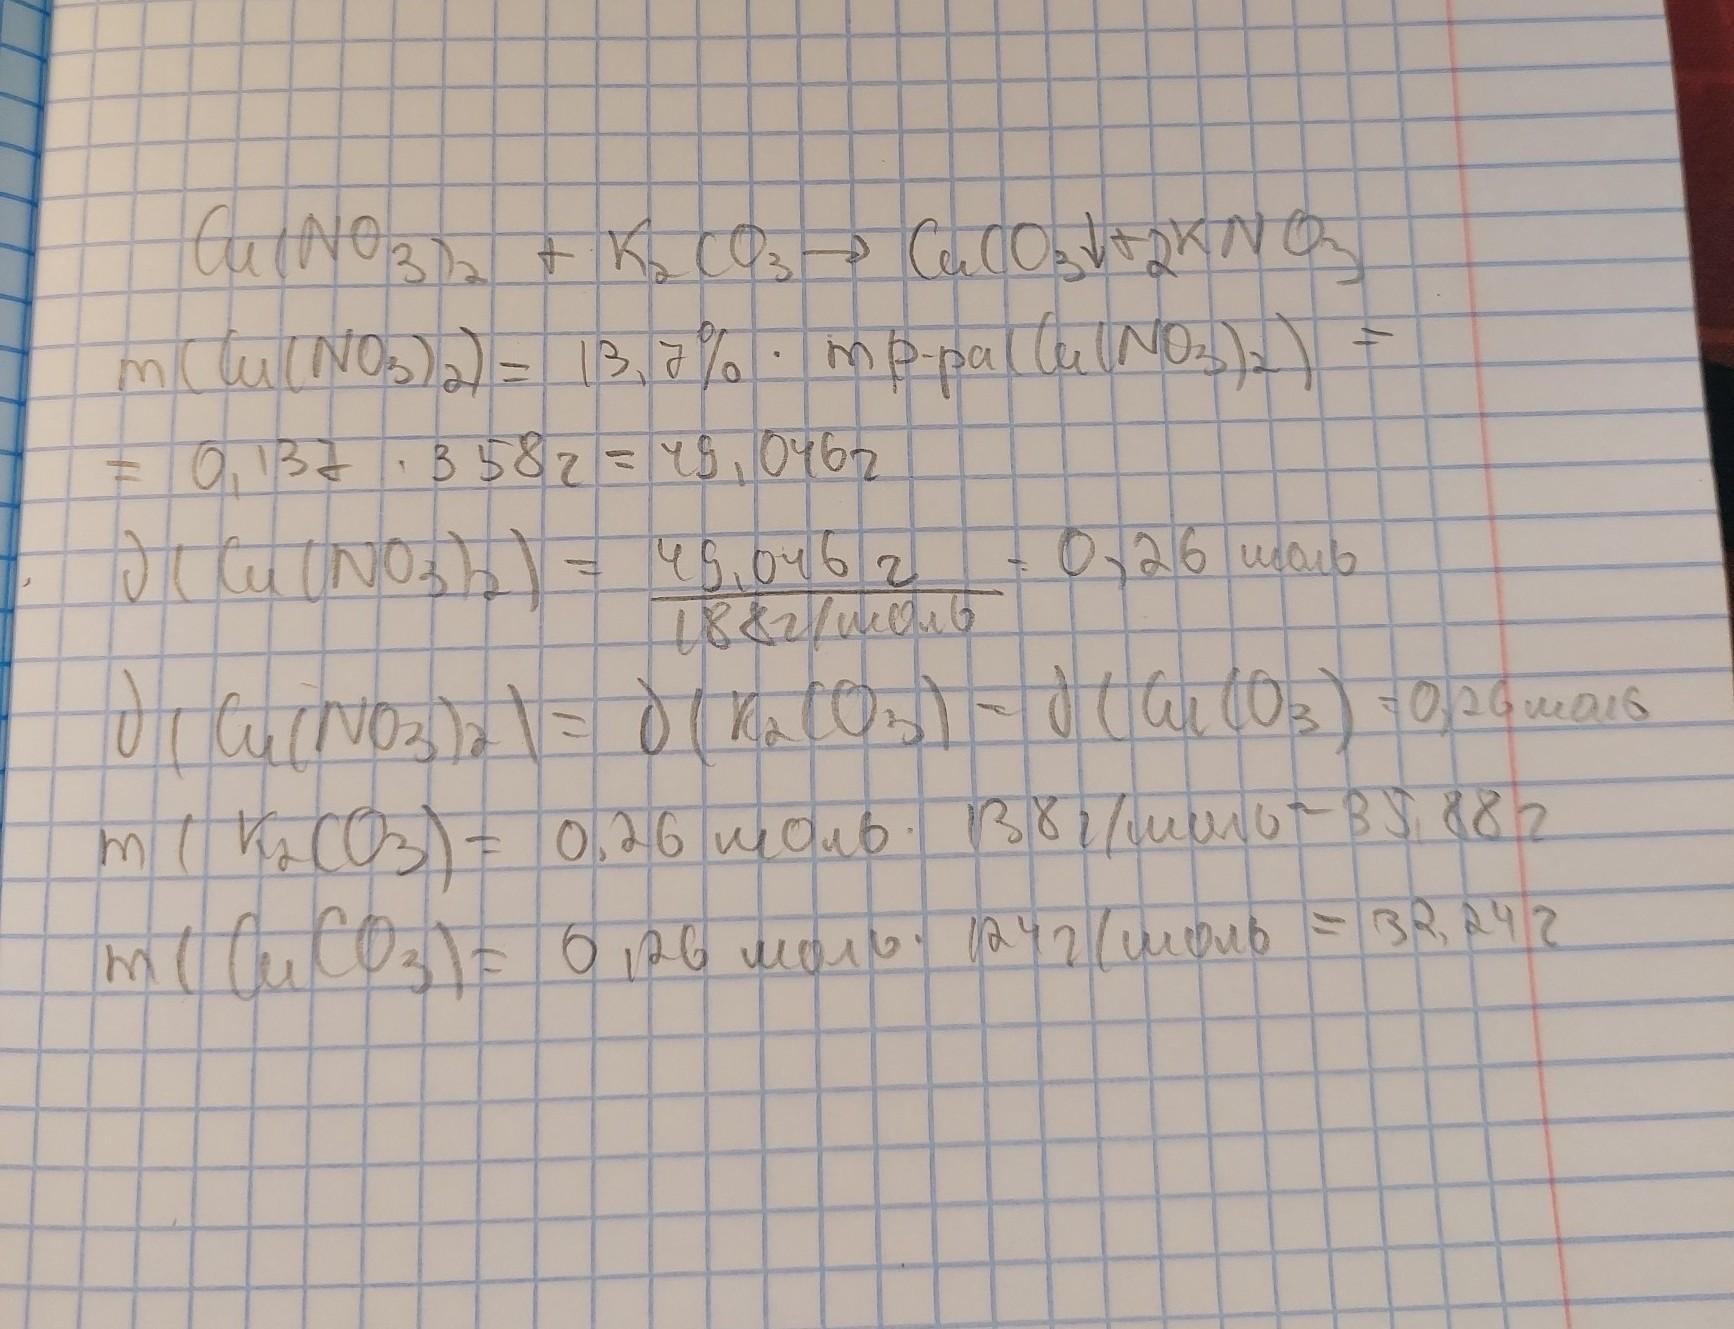 Cu(NO3)2 + K2CO3 → CuCO3↓+2KNO3
m(Cu(NO3)2) = 13,7% · mр-ра(Cu(NO3)2) =
= 0,137 · 358г = 49,046г
ν(Cu(NO3)2) = 49,046г / 188г/моль = 0,26 моль
ν(Cu(NO3)2) = ν(K2CO3) = ν(CuCO3) = 0,26 моль
m(K2CO3) = 0,26 моль · 138г/моль = 35,88г
m(CuCO3) = 0,26 моль · 124г/моль = 32,24г